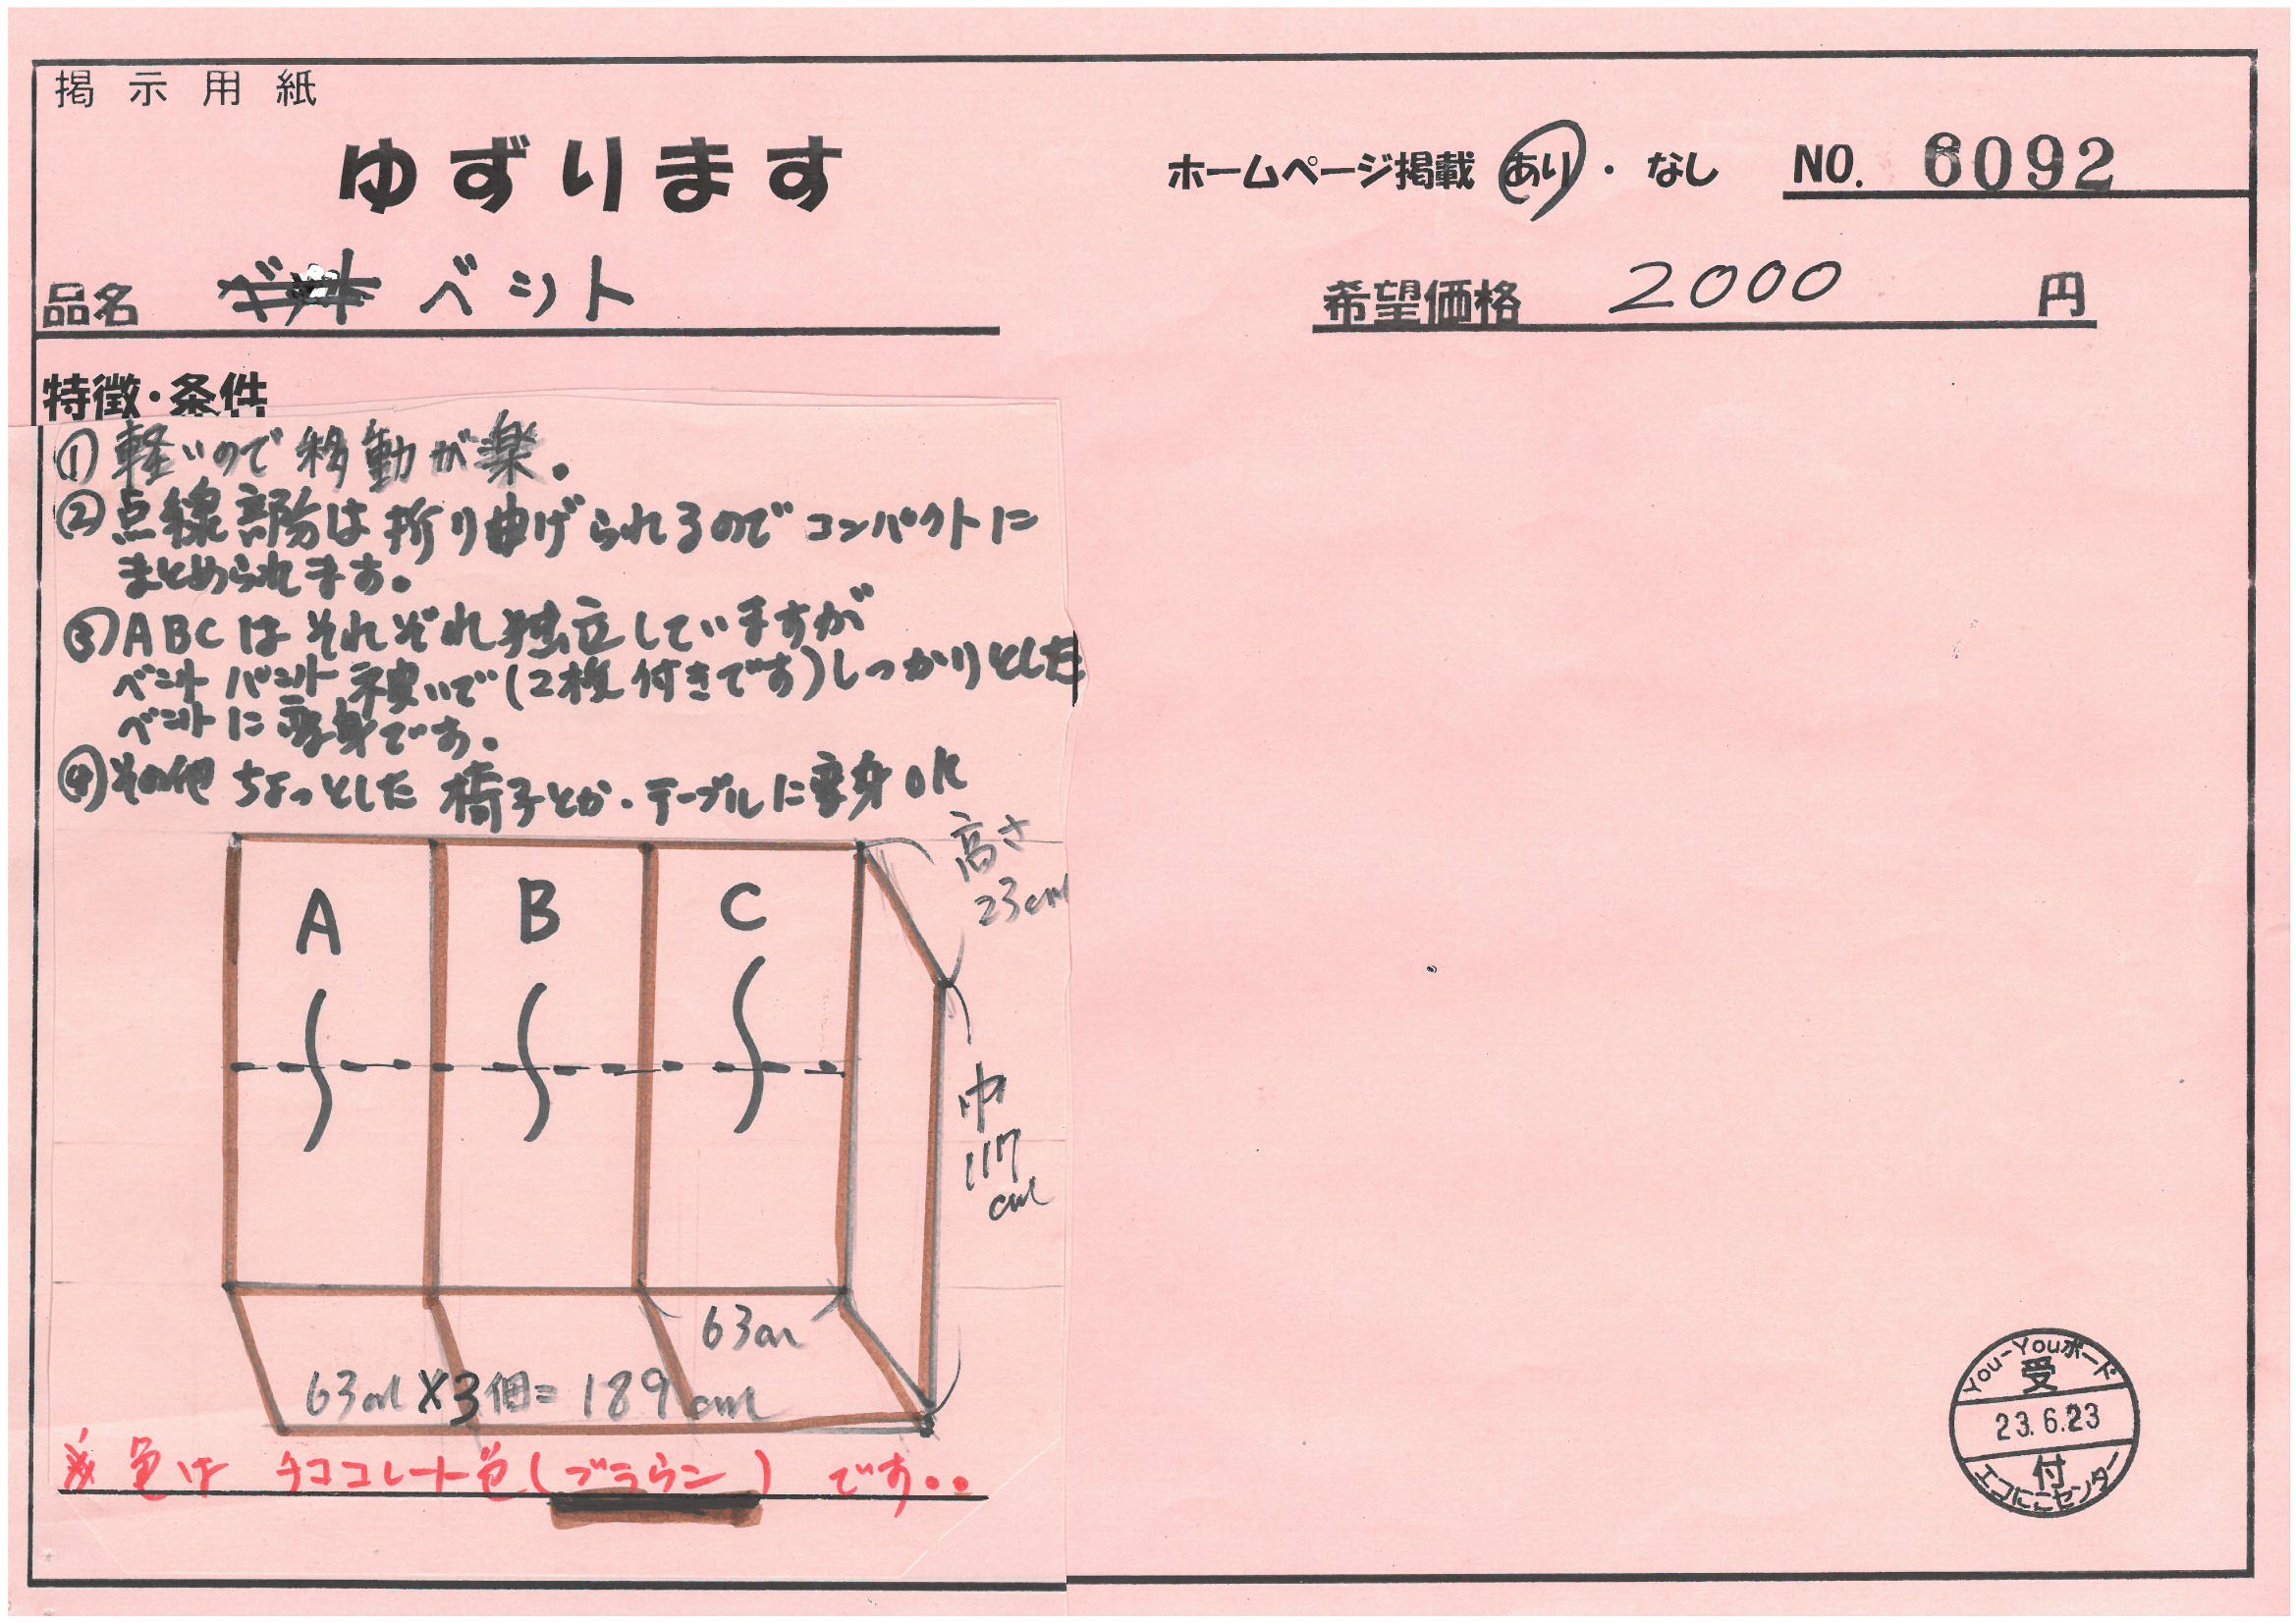 掲示用紙
ゆずります
ホームページ掲載 あり・なし NO. 6092
品名 ベット
希望価格 2000 円
特徴・条件
①軽いので移動が楽。
②点線部分は折り曲げられるのでコンパクトに
まとめられます。
③ABCはそれぞれ独立していますが
ベットパット被いで(2枚付きです)しっかりとした
ベットに変身です。
④その他ちょっとした椅子とか・テーブルに変身OK
高さ
23cm
A B C
巾
117
cm
63cm
63cm×3個=189cm
※色はチョコレート色(ブラウン)です..
You-Youボード
受
23.6.23
付
エコにこセンター